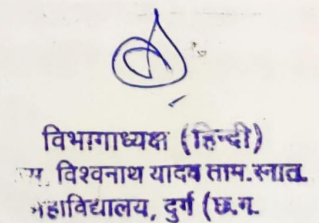 विभागाध्यक्ष (हिन्दी)
विश्वनाथ यादव ताम.स्नात.
महाविद्यालय, दुर्ग (छ.ग.